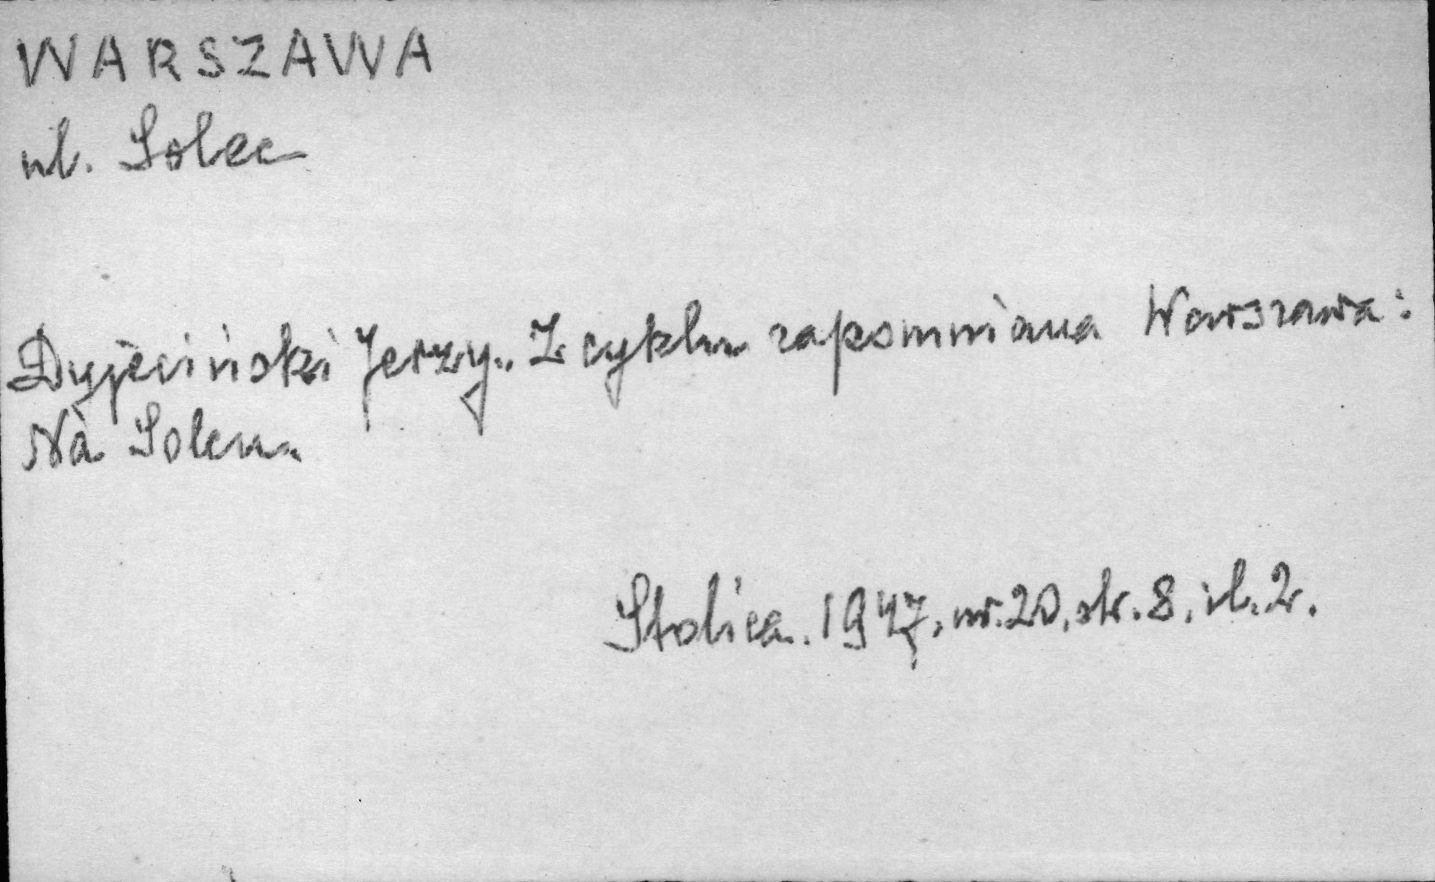 WARSZAWA
ul. Solec
Dyjeciński Jerzy.. Z cyklu zapomniana Warszawa:
Na Solcu.
Stolica. 1947, nr. 20, str. 8, il. 2.